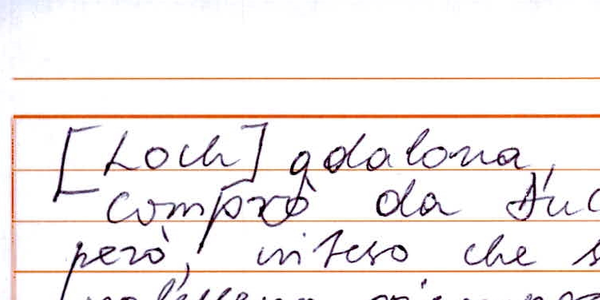 [Loch] gdalona,
comprò da
però, inteso che s